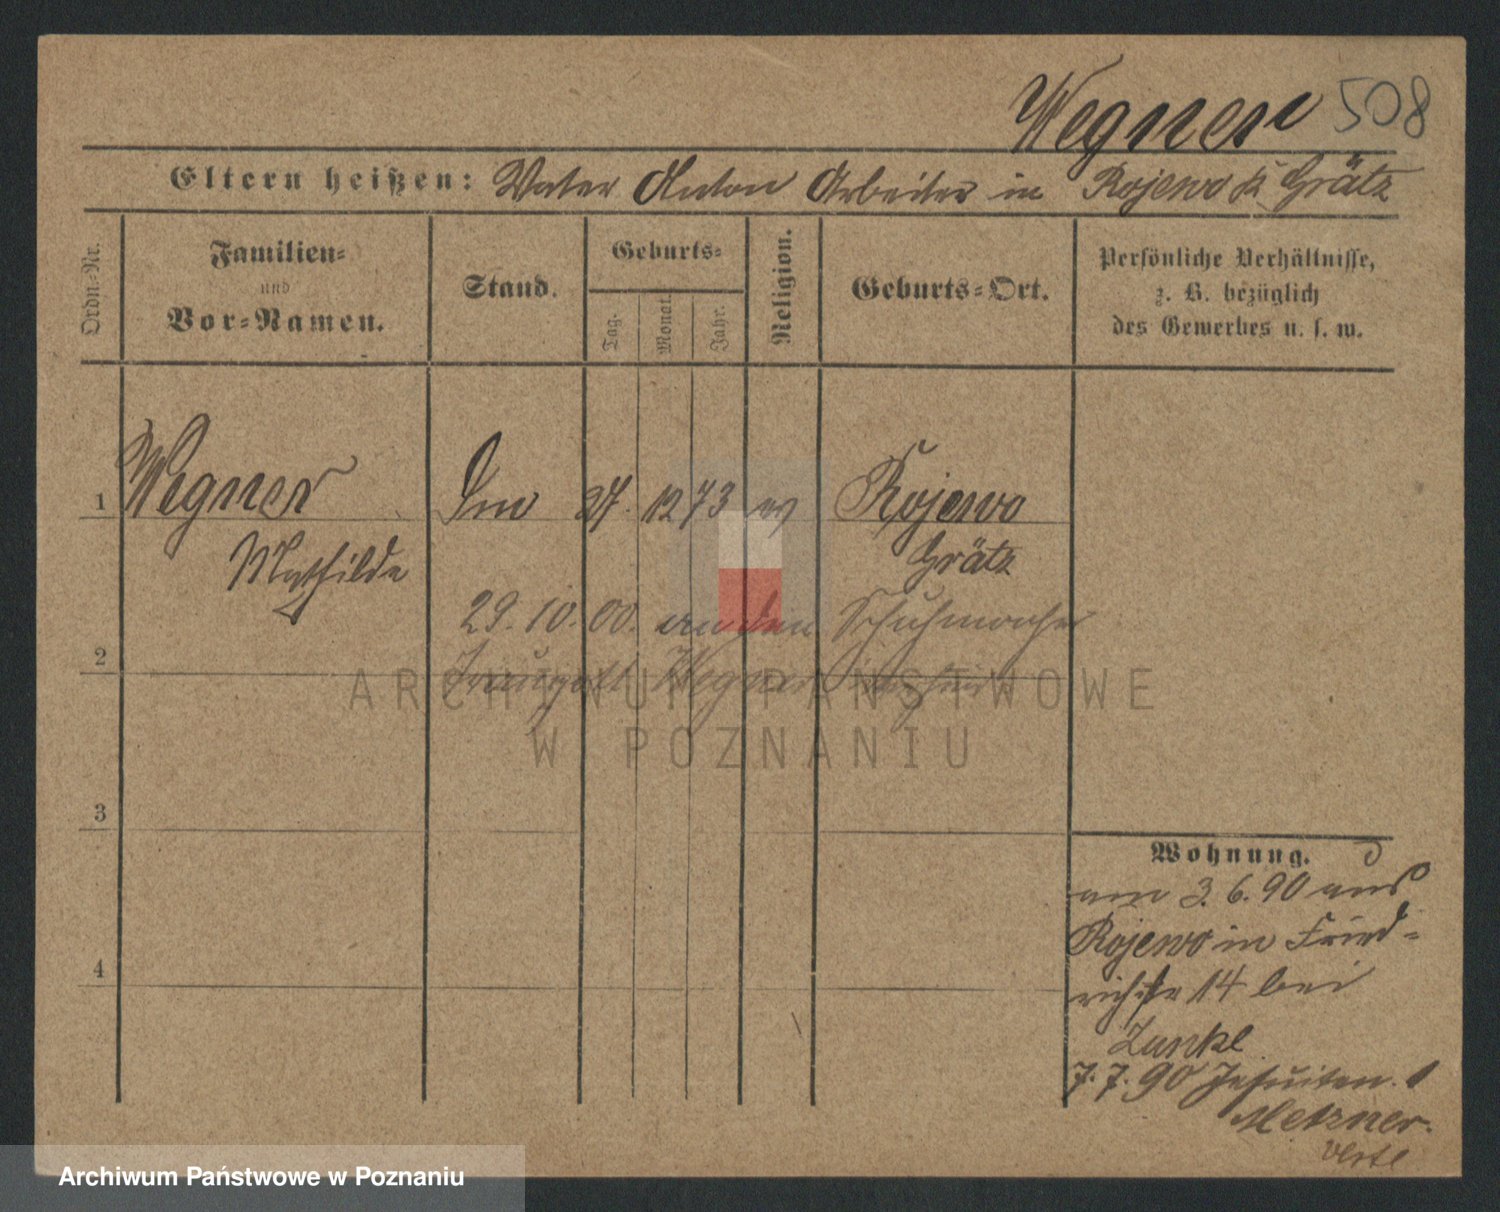 Wegner 508
Eltern heißen: Vater Anton Arbeiter in Rojewo k Grätz
Ordn.-Nr.
Familien-
und
Vor-Namen.
Stand.
Geburts-
Tag.
Monat.
Jahr.
Religion.
Geburts-Ort.
Persönliche Verhältnisse,
z. B. bezüglich
des Gewerbes u. s. w.
1 Wegner 27. 12 73 Rojewo
Mathilde Grätz
29. 10. 00. an den Schuhmacher
2 Traugott Wegner
ARCHIWUM PAŃSTWOWE
W POZNANIU
3
Wohnung.
am 3. 6. 90 aus
4 Rojewo in Fried-
richstr 14 bei
7. 7. 90 Jesuiten. 1
Metzner.
Archiwum Państwowe w Poznaniu